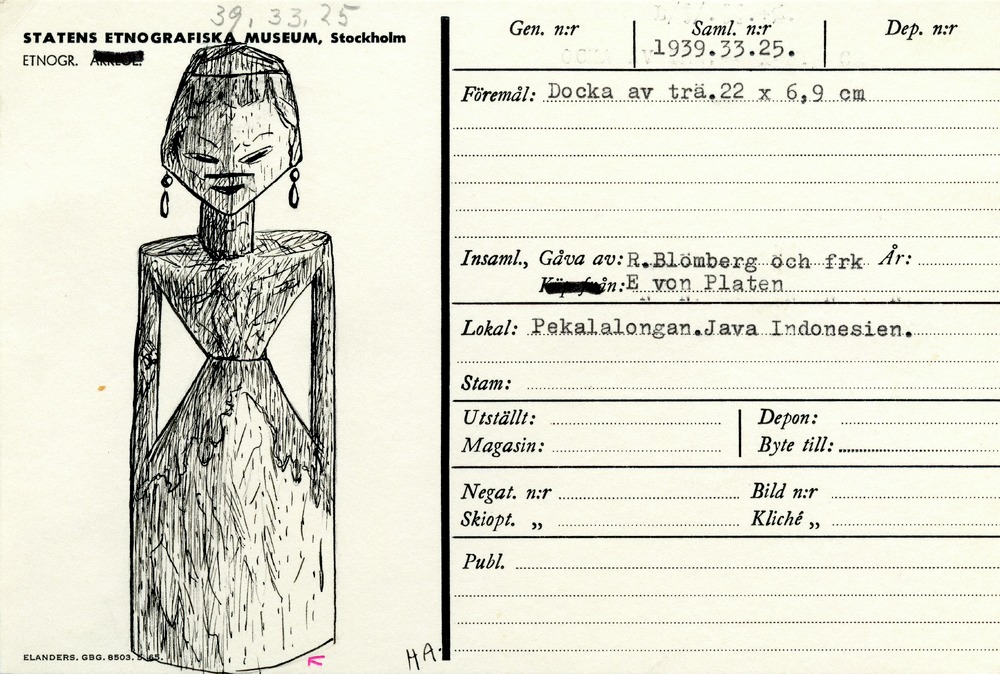 39.33.25
STATENS ETNOGRAFISKA MUSEUM, Stockholm
ETNOGR.
Gen. n:r
Saml. n:r
1939.33.25.
Dep. n:r
Föremål: Docka av trä.22 x 6,9 cm
Insaml., Gåva av: R.Blomberg och frk År:
E von Platen
Lokal: Pekalalongan.Java Indonesien.
Stam:
Utställt: Depon:
Magasin: Byte till:
Negat. n:r Bild n:r
Skiopt. „ Kliché „
Publ.
ELANDERS. GBG. 8503. 65.
HA.